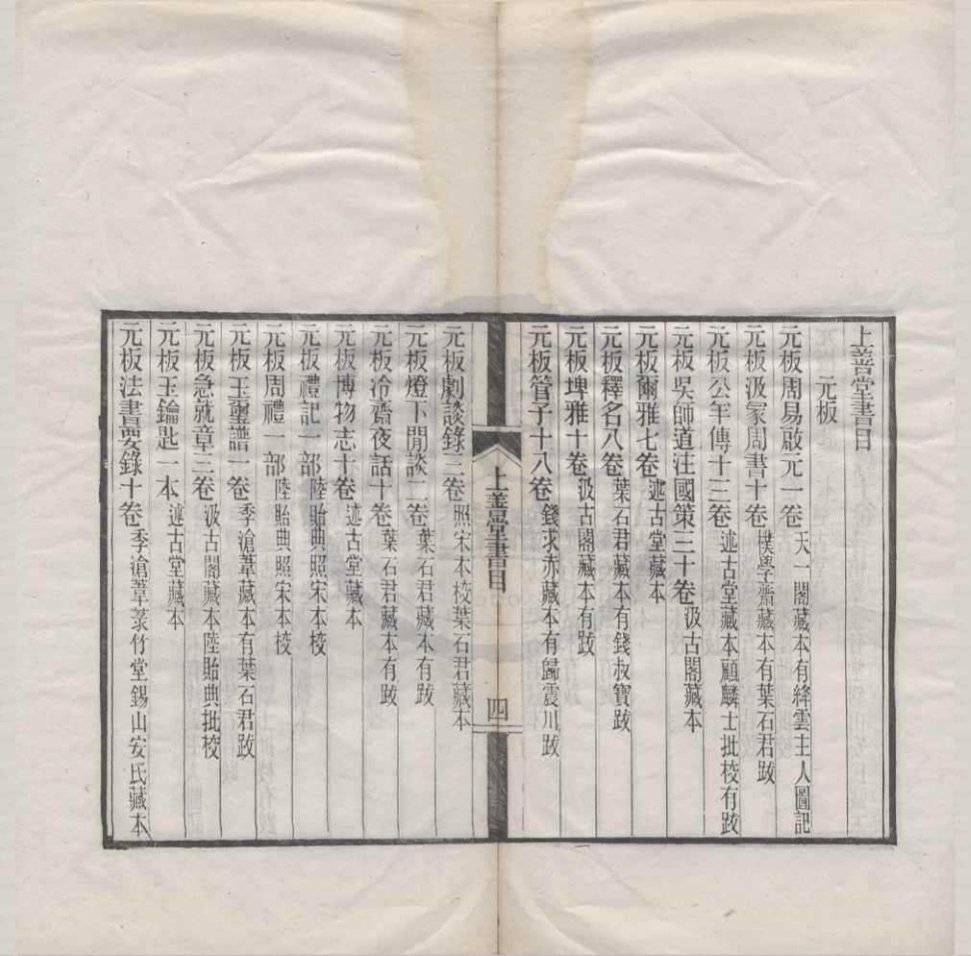 上善堂書目
元板
元板周易啟元一卷天一閣藏本有絳雲主人圖記
元板汲冢周書十卷樸學齋藏本有葉石君跋
元板公羊傳十三卷述古堂藏本顧麟士批校有跋
元板吳師道注國策三十卷汲古閣藏本
元板爾雅七卷述古堂藏本
元板釋名八卷葉石君藏本有錢叔寶跋
元板埤雅十卷汲古閣藏本有跋
元板管子十八卷錢求赤藏本有歸震川跋
上善堂書目
四
元板劇談錄三卷照宋本校葉石君藏本
元板燈下閒談二卷葉石君藏本有跋
元板冷齋夜話十卷葉石君藏本有跋
元板博物志十卷述古堂藏本
元板禮記一部陸貽典照宋本校
元板周禮一部陸貽典照宋本校
元板玉璽譜一卷季滄葦藏本有葉石君跋
元板急就章三卷汲古閣藏本陸貽典批校
元板玉鑰匙一本述古堂藏本
元板法書要錄十卷季滄葦菉竹堂錫山安氏藏本